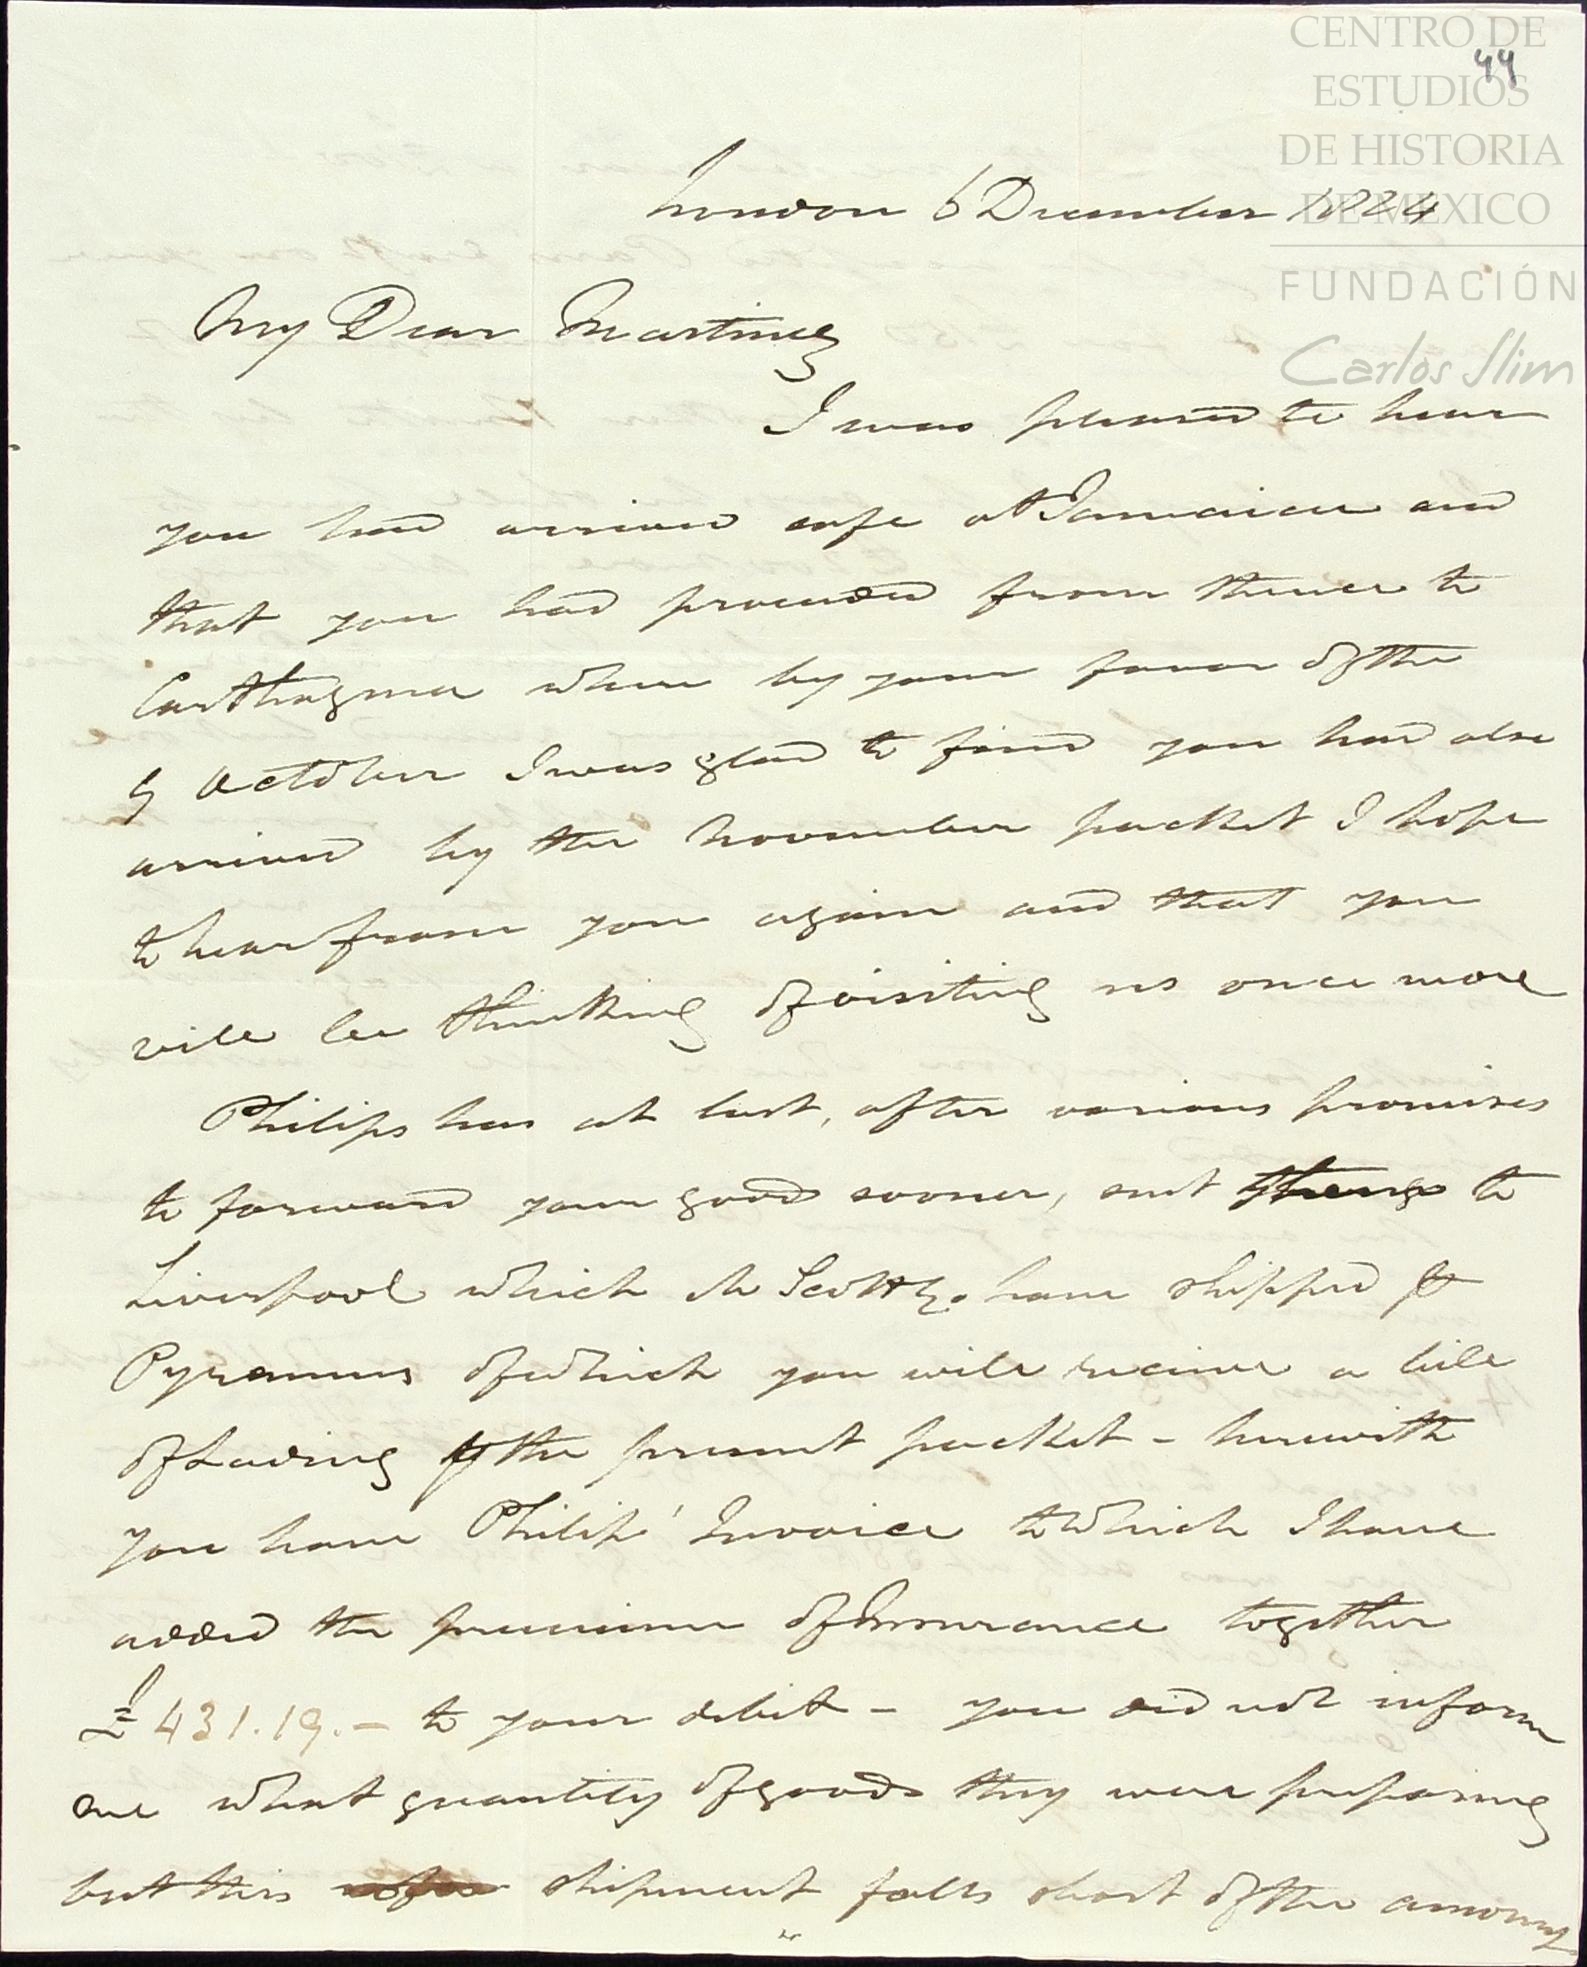 CENTRO DE
ESTUDIOS
DE HISTORIA
DE MEXICO
FUNDACIÓN
Carlos Slim
44
London 6 December 1824
My Dear Martinez
I was pleased to hear
you had arrived safe at Jamaica and
that you had proceeded from thence to
Carthagena where by your favor of the
9 October I was glad to find you had also
arrived by the November packet I hope
to hear from you again and that you
will be thinking of visiting us once more
Philips has at last, after various promises
to forward your goods sooner, sent to
Liverpool which M Scott & Co have shipped
Pyramus of which you will receive a bill
of Lading the present packet - herewith
you have Philips' Invoice to which I have
added the premium of Insurance together
£431.19.- to your debit - you did not inform
me what quantity of goods they were preparing
but this shipment falls short of the amount